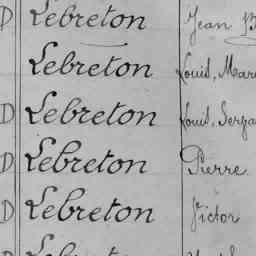 D Lebreton Jean B
Lebreton Louis, Mari
D Lebreton Louis, Serga
D Lebreton Pierre
D Lebreton Victor
Lebreton